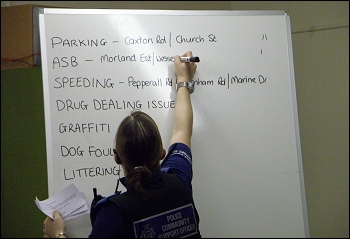 PARKING - Caxton Rd / Church St 11
ASB - Morland Est / 1
SPEEDING - Pepperall Rd / Marine Dr
DRUG DEALING ISSUE
GRAFFITI
DOG FOUL
LITTERING
POLICE
COMMUNITY
SUPPORT OFFICER